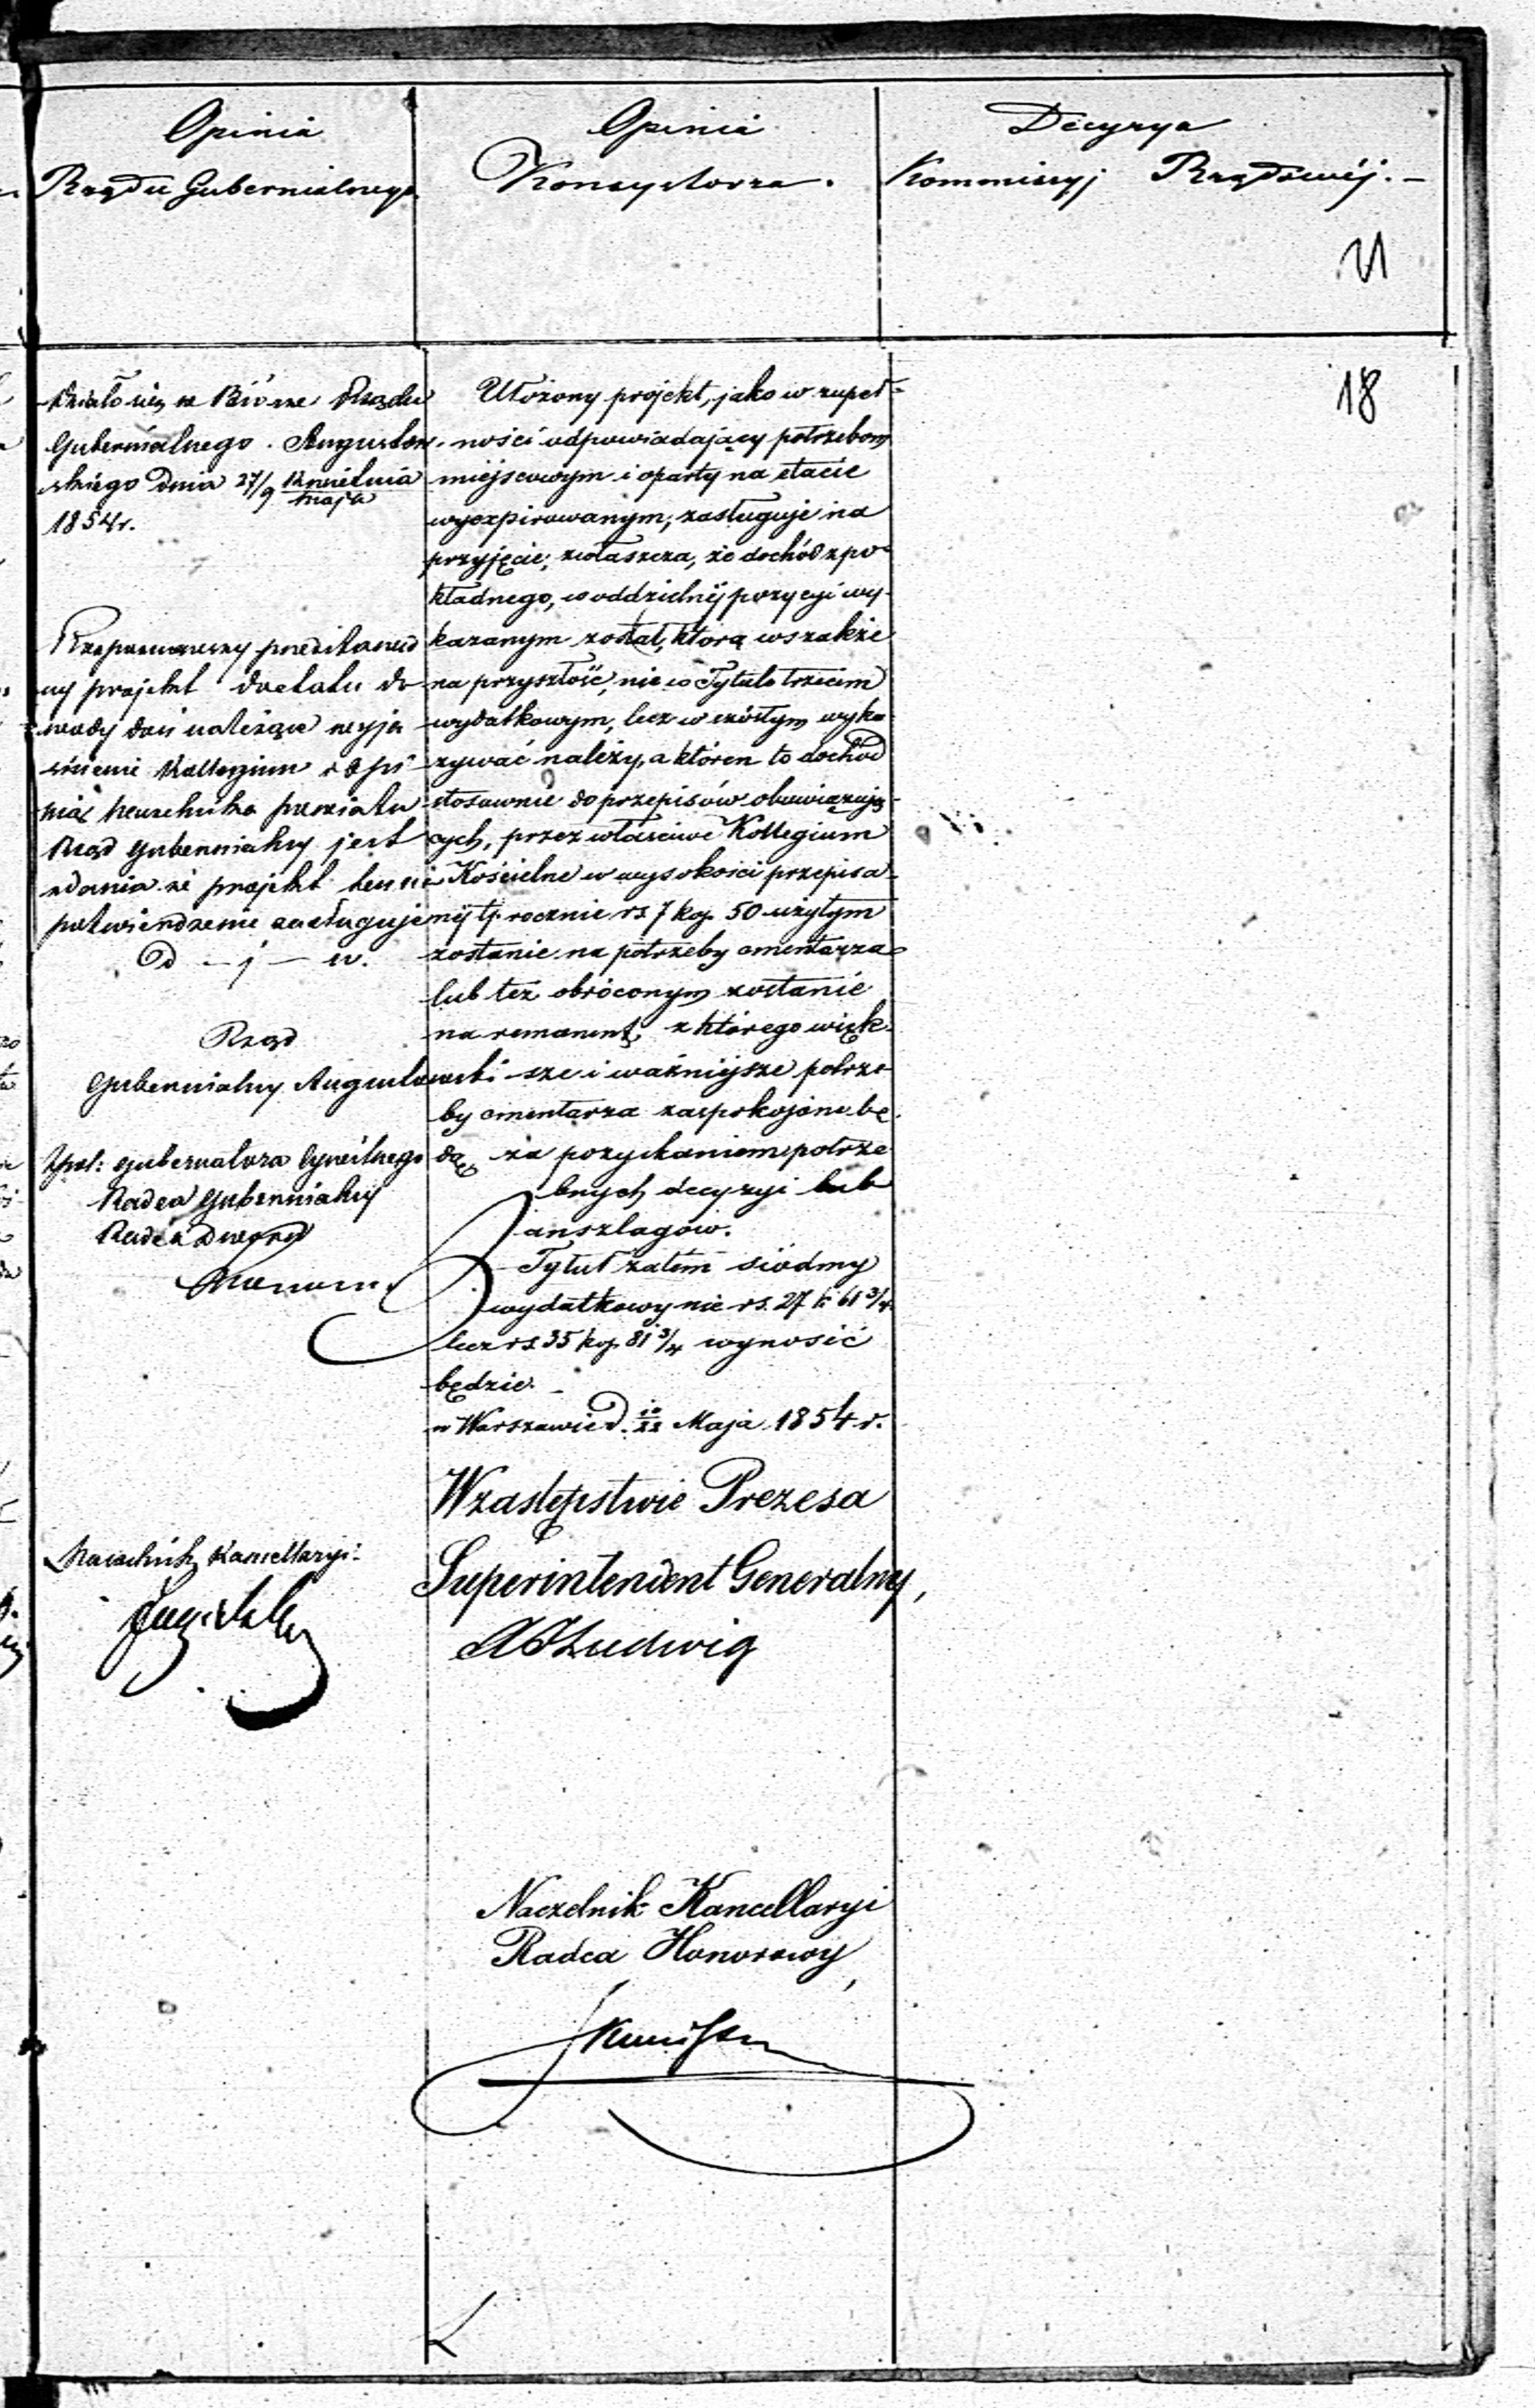 Opinia
Rządu Gubernialnego
Opinia
Konsystorza.
Decyzya
Kommissyj Rządowéj. —
21
18
Działo się w Biórze Rządu
Gubernialnego Augustow-
skiego Dnia 27/9 Kwietnia/Maja
1854 r.
projekt do etatu do
Kollegium
Naczelnika powiatu
Rząd Gubernialny jest
zdania że projekt ten na
potwierdzenie zasługuje
D — j — w.
Rząd
Gubernialny Augustowski
Gubernatora Cywilnego
Radca Gubernialny
Radca Dworu
Naczelnik Kancellaryi
Ułożony projekt, jako w zupeł-
ności odpowiadający potrzebom
miejscowym i oparty na etacie
wyexpirowanym, zasługuje na
przyjęcie; zwłaszcza, że dochód z po-
kładnego, w oddzielnéj pozycyi wy-
kazanym został, którą wszakże
na przyszłość, nie w Tytule trzecim
wydatkowym, lecz w szóstym wyka-
zywać należy, a któren to dochód
stosownie do przepisów obowiązują-
cych, przez właściwe Kollegium
Kościelne w wysokości przepisa-
néj tj. rocznie rs 7 kop. 50 użytym
zostanie na potrzeby cmentarza
lub też obróconym zostanie
na remanent, z którego więk-
sze i ważniejsze potrze-
by cmentarza zaspokojone bę-
dą za pozyskaniem potrze
bnych decyzyi lub
anszlagów.
Tytuł zatem siódmy
wydatkowy nie rs. 27 k 61 3/4
lecz rs 35 kop. 81 3/4 wynosić
będzie. —
w Warszawie d. 10/22 Maja 1854 r.
W zastępstwie Prezesa
Superintendent Generalny,
Ludwig
Naczelnik Kancellaryi
Radca Honorowy